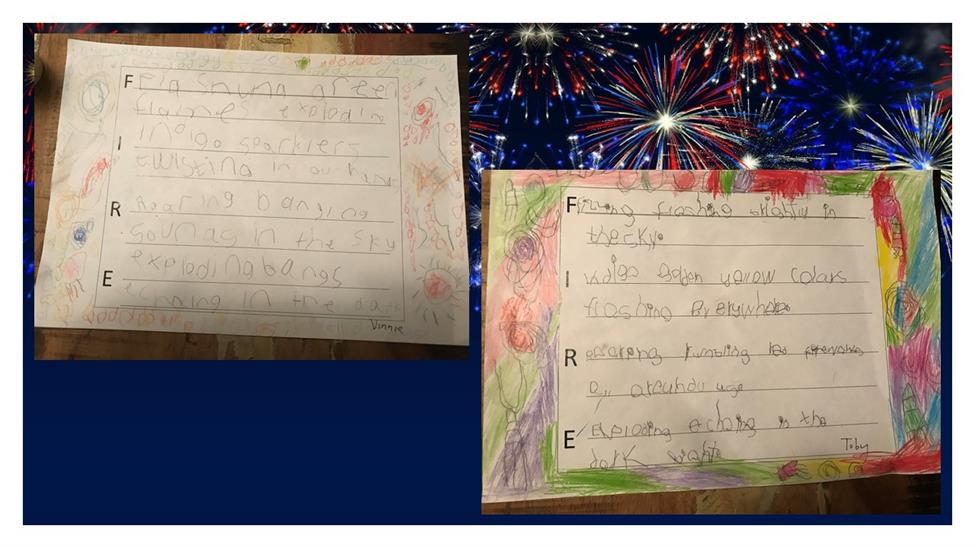 F Flashing green
flames exploding
I indigo sparklers
twisting in our hands
R Roaring banging
in the sky
E exploding bangs
echning in the dark
Vinnie
F flashing in
the sky
I indigo yellow colars
flashing Everywhere
R rumbling
around
E Exploding echoing in the
dark
Toby